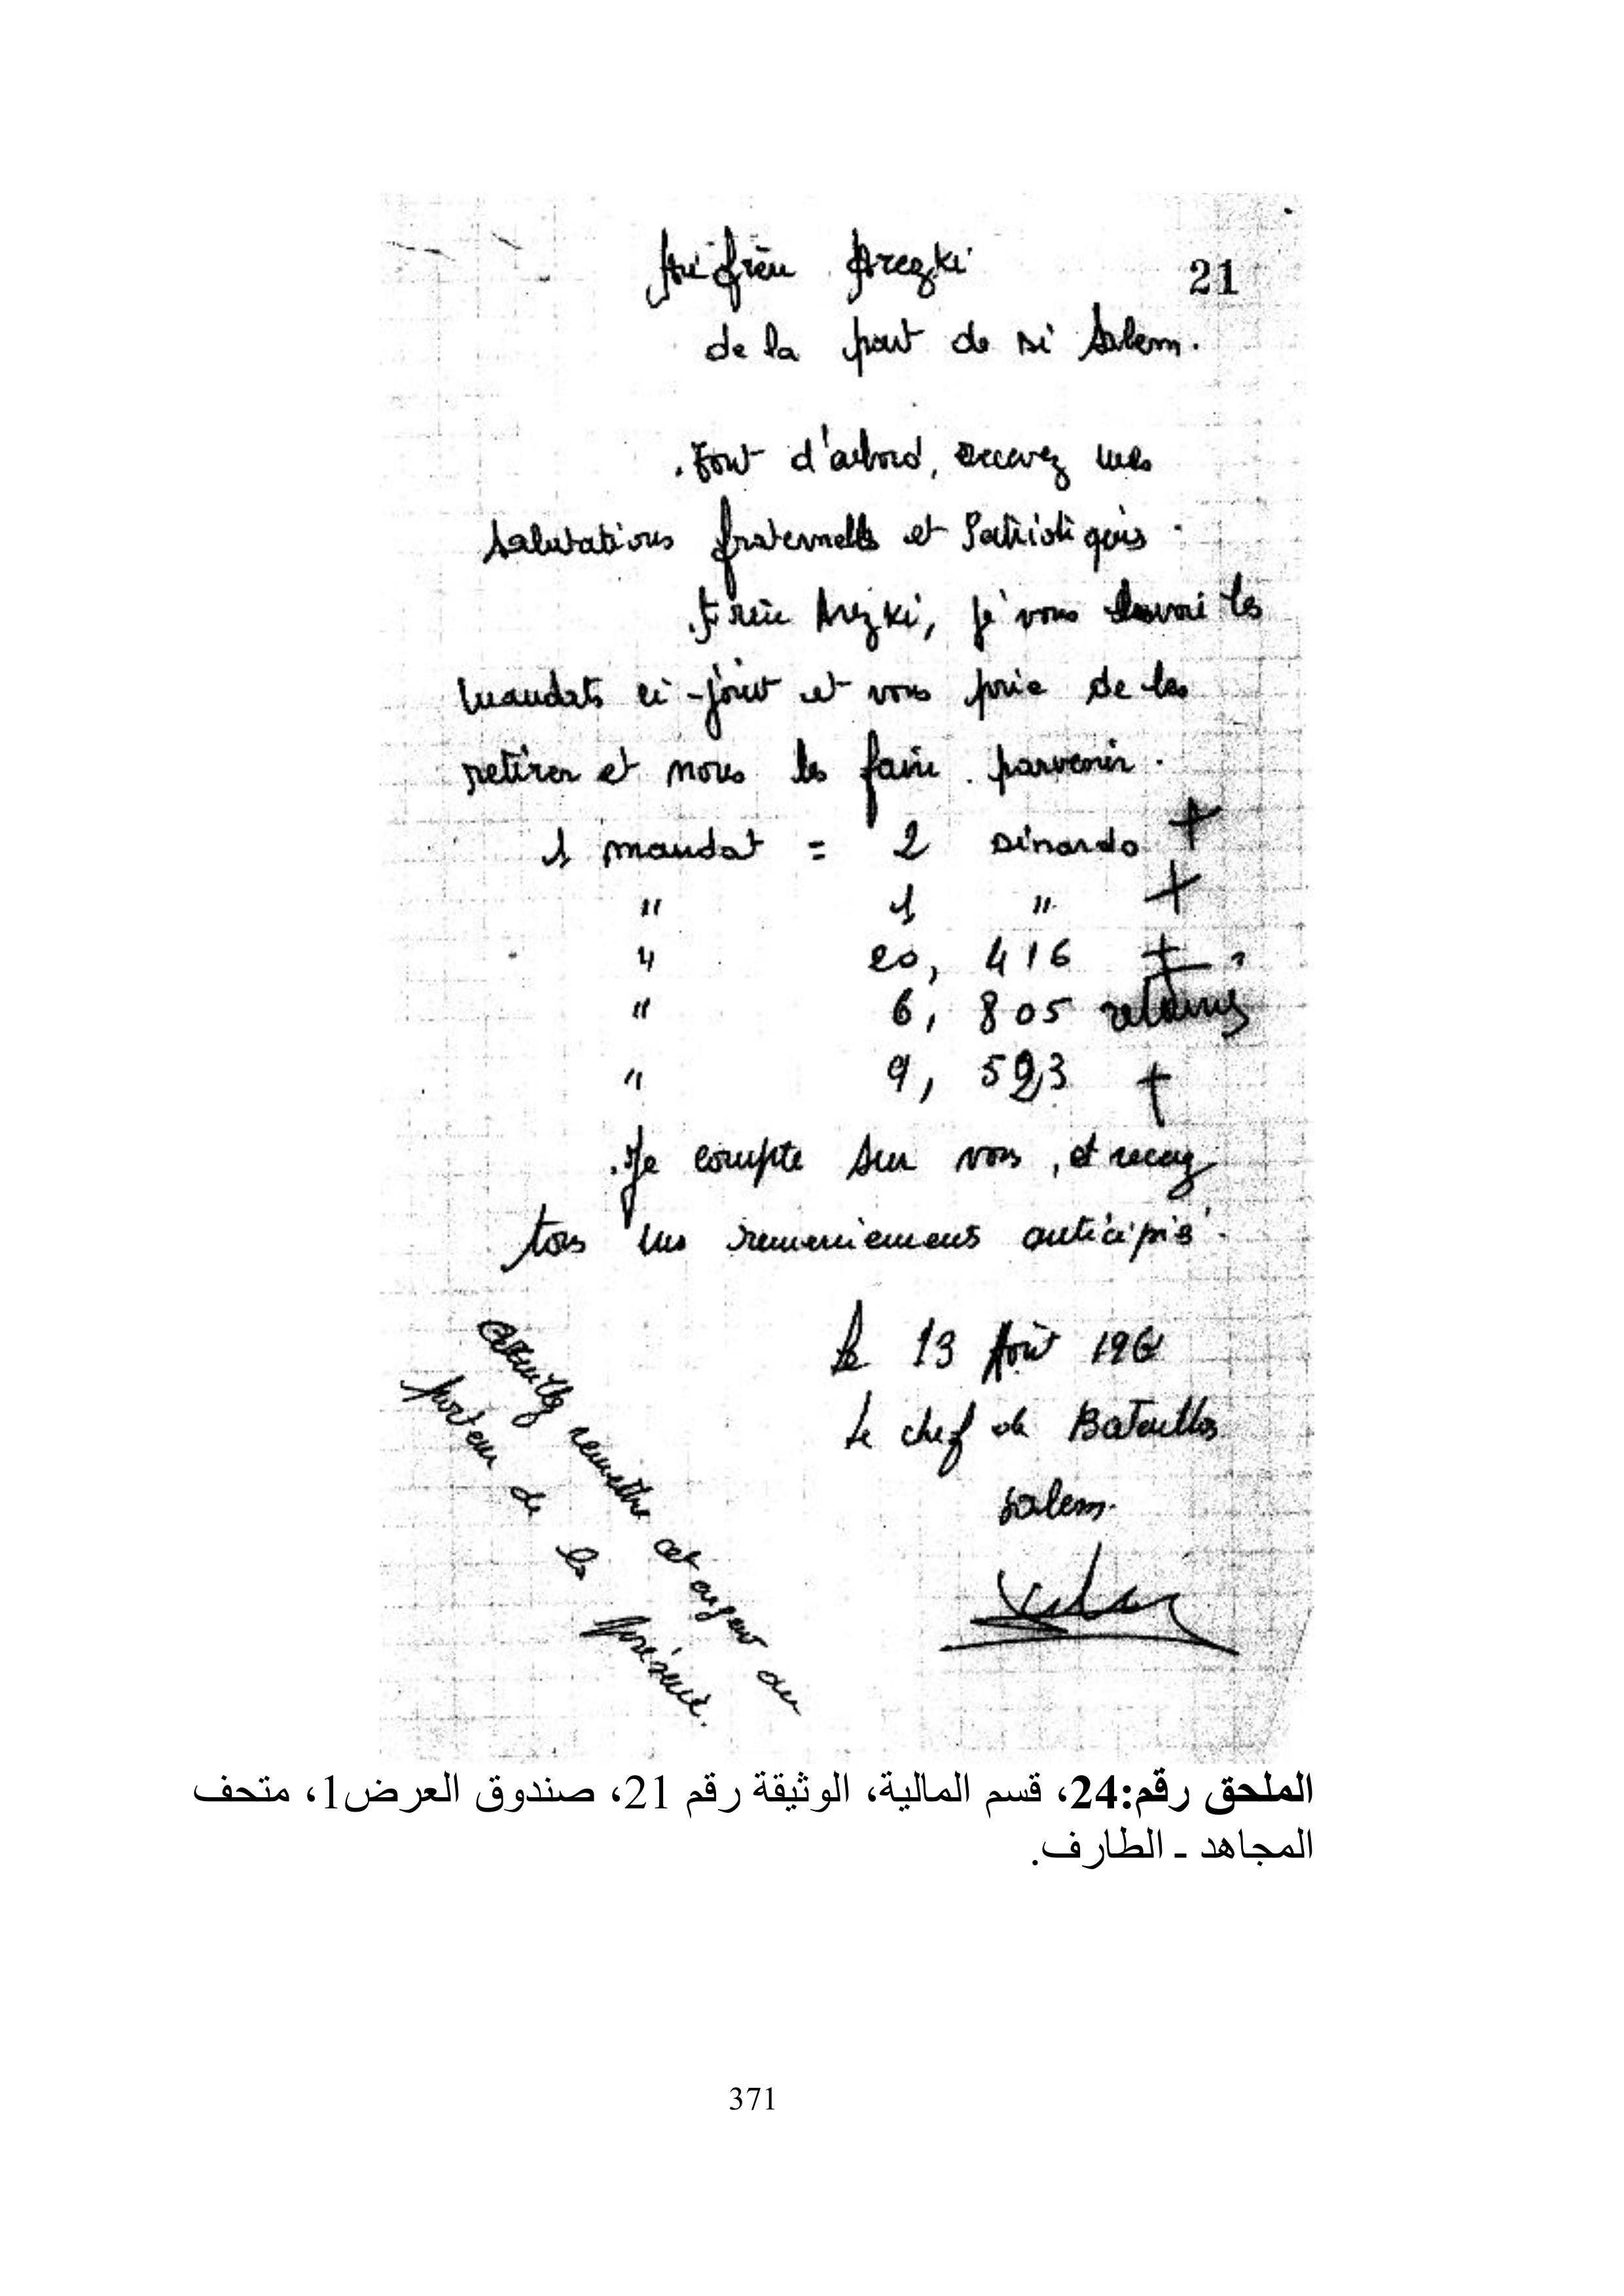 Au frère Arezki
21
de la part de si Salem.
. Tout d'abord, recevez mes
Salutations fraternells et Patriotiques .
. Frère Arezki, je vous envoi les
mandats ci-joint et vous prie de les
retirer et nous les faire parvenir .
1 mandat = 2 dinards +
" 1 " +
" 20, 416 +
" 6, 805
" 9, 523 +
. Je compte sur vous, et recevez
tous mes remerciements anticipés .
Le 13 Août 196
Le chef de
Salem.
remettre cet argent au
porteur de la présente.
الملحق رقم:24، قسم المالية، الوثيقة رقم 21، صندوق العرض1، متحف
المجاهد ـ الطارف.
371